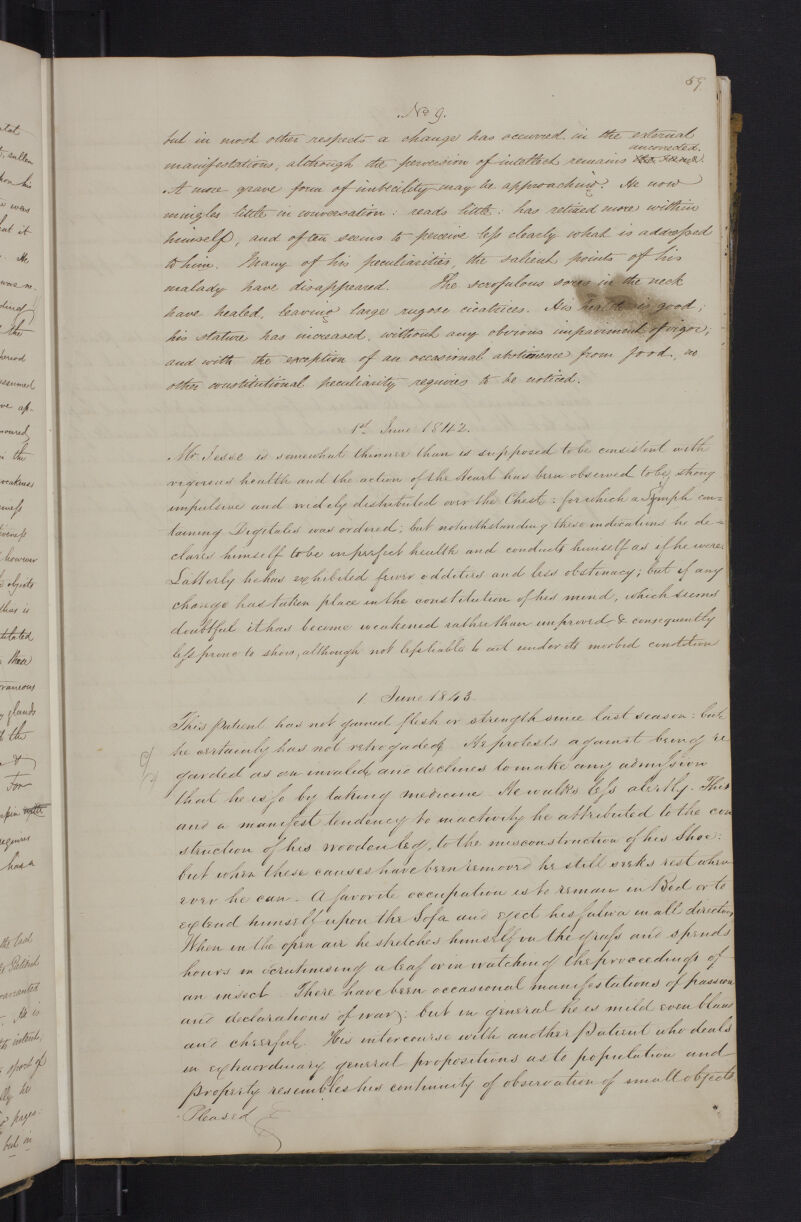 59.
No 9.
but in most other respects a change has occurred in the external
manifestations, although the perversion of intellect remains the same uncorrected.
A more grave form of imbecility may be approaching. He now
mingles little in conversation: reads little: has retired more within
himself, and often seems to perceive less clearly what is addressed
to him. Many of his peculiarities, the salient points of his
malady have disappeared. The scrofulous sores in the neck
have healed, leaving large rugose cicatrices. His health is good;
his stature has increased, without any obvious impairment of vigor;
and with the exception of an occasional abstinence from food, no
other constitutional peculiarity requires to be noticed.
1st June 1842.
Mr Jesse is somewhat thinner than is supposed to be consistent with
vigorous health and the action of the Heart has been observed to be strong
impulsive and widely distributed over the Chest: for which a Lymph con=
taining Digitales was ordered: but notwithstanding these indications he de=
clares himself to be in perfect health and conducts himself as if he were.
Latterly he has exhibited fewer oddities and less obstinacy; but if any
change has taken place in the constitution of his mind, which seems
doubtful it has become weakened rather than improved & consequently
less prone to show, although not less liable to act under its morbid condition
1 June 1843.
This patient has not gained flesh or strength since last season: but
he certainly has not retrogaded. He protests against being re
garded as an invalid, and declines to make any admission
that he is so by taking medicine. He walks less alertly. This
and a manifest tendency to inactivity he attributed to the con
struction of his wooden leg, to the misconstruction of his Shoe:
but when these causes have been removed he still seeks rest when
ever he can. A favorite occupation is to remain in Bed or to
extend himself upon the Sofa and eject his saliva in all directions
When in the open air he stretches himself on the grass and spends
hours in scrutinising a leaf or in watching the proceedings of
an insect. There have been occasional manifestations of passion
and declarations of war: but in general he is mild even bland
and cheerful. His intercourse with another Patient who deals
in extraordinary general propositions as to population and
property resembles his continuity of observation of small objects
Pleased